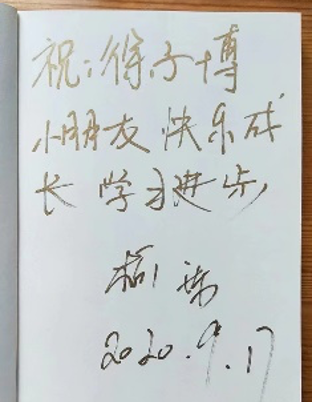 祝:徐子博
小朋友 快乐成
长 学习进步
2020.9.17